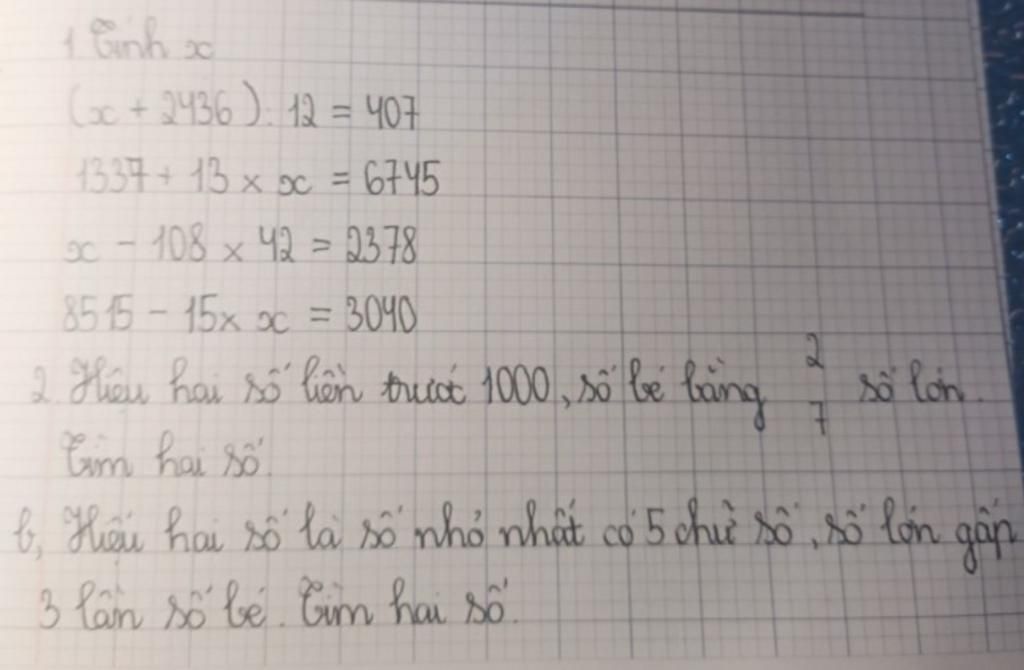 1. Tính x
(x + 2436) : 12 = 407
1337 + 13 × x = 6745
x - 108 × 42 = 2378
8515 - 15 × x = 3040
2. Hiệu hai số liền trước 1000, số bé bằng 2/7 số lớn.
Tìm hai số.
b, Hiệu hai số là số nhỏ nhất có 5 chữ số, số lớn gấp
3 lần số bé. Tìm hai số.